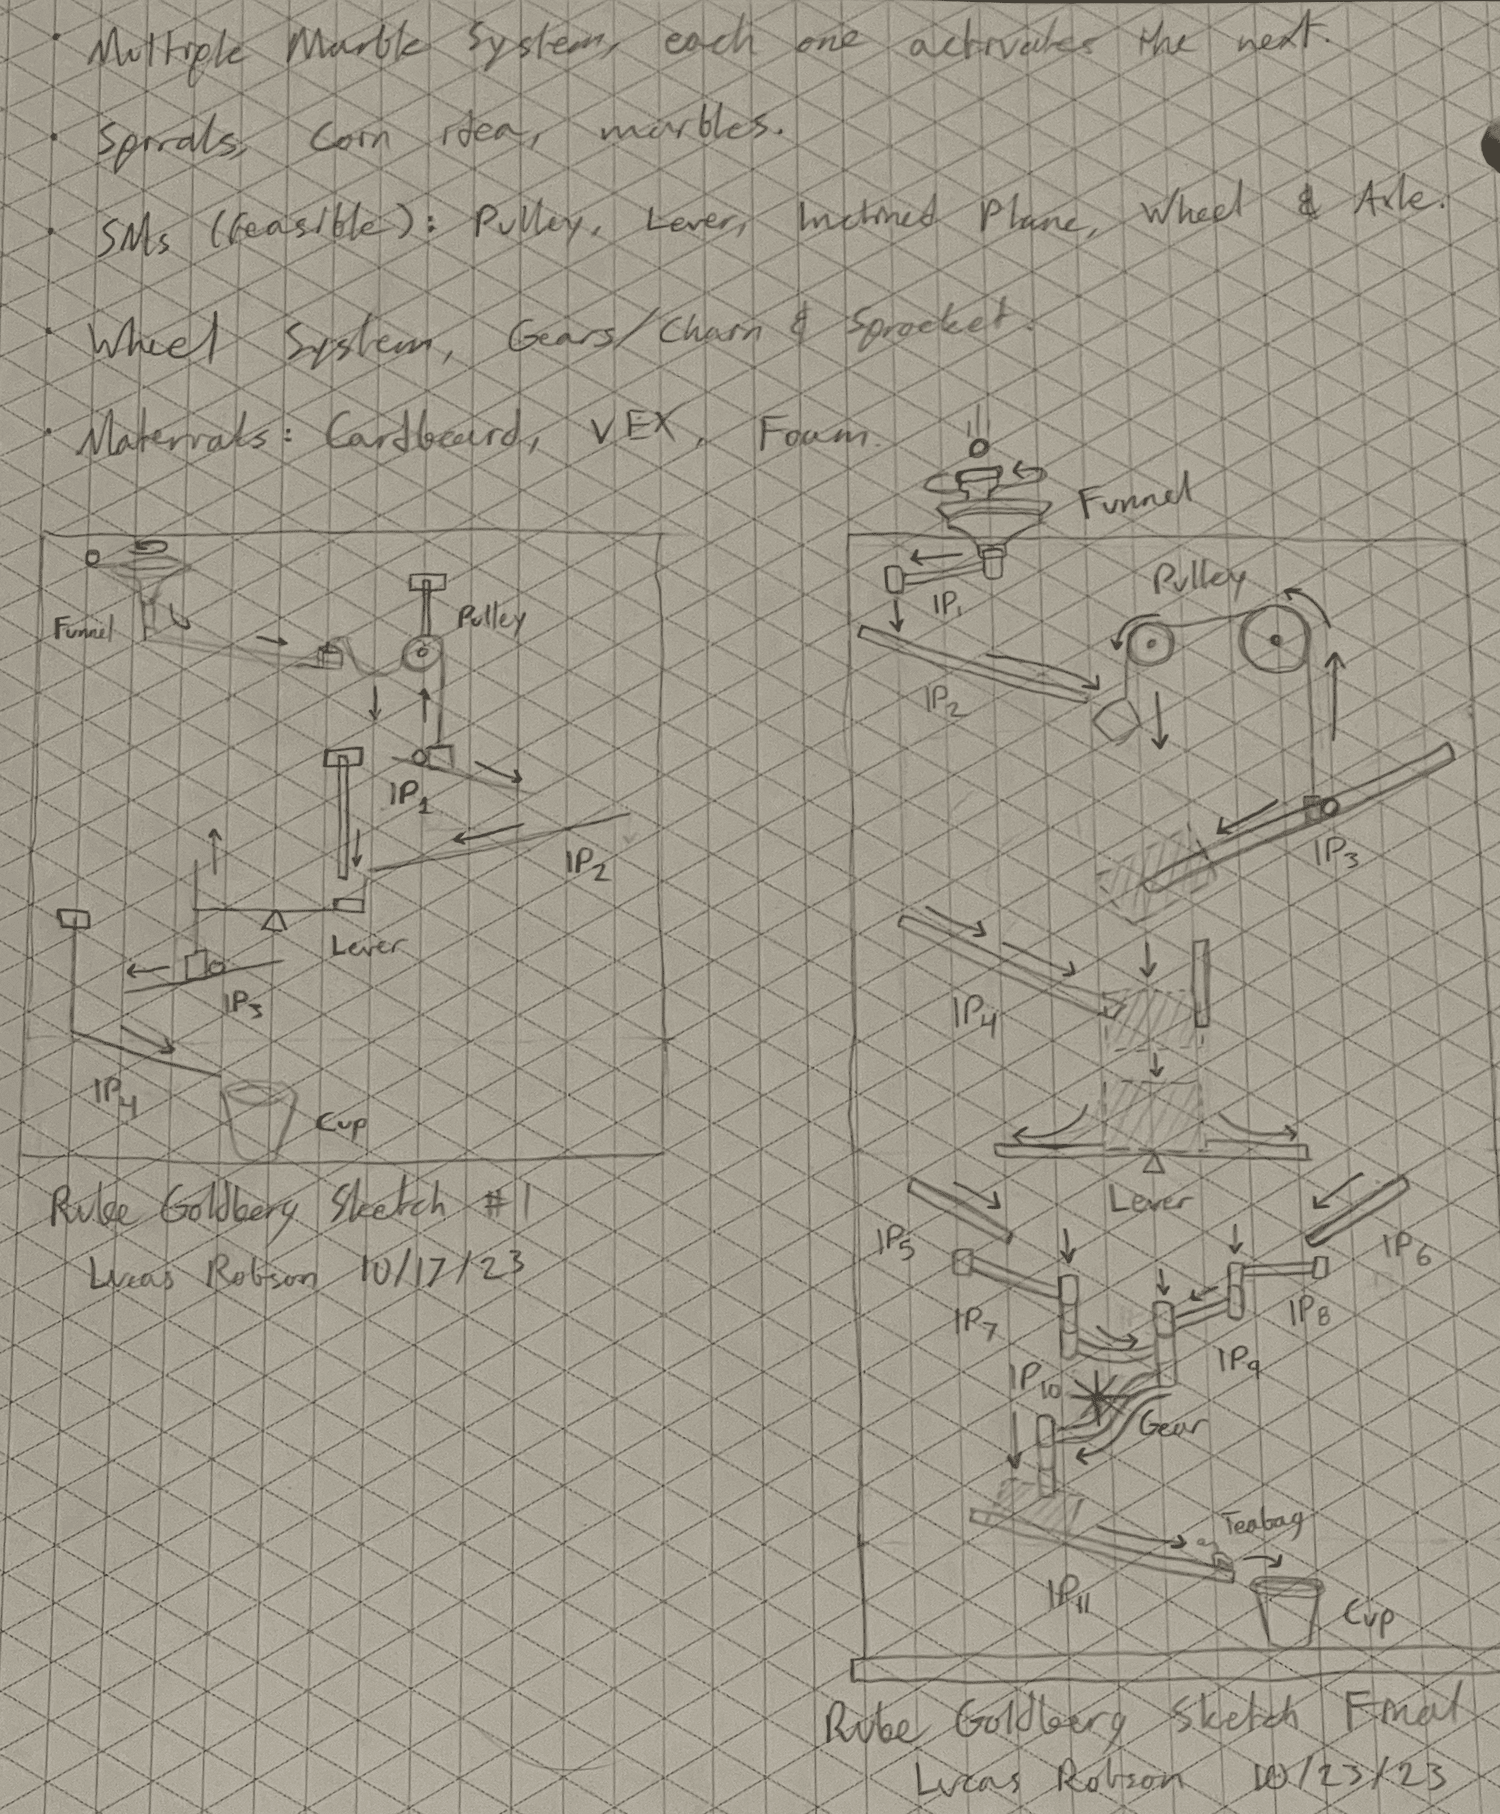 • Multiple Marble System, each one activates the next.
• Spirals, Corn idea, marbles.
• SMs (feasible): Pulley, Lever, Inclined Plane, Wheel & Axle.
• Wheel System, Gears/Chain & Sprocket.
• Materials: Cardboard, VEX, Foam.
Funnel
Pulley
IP1
IP2
Lever
IP3
IP4
Cup
Rube Goldberg Sketch #1
Lucas Robson 10/17/23
Funnel
IP1
Pulley
IP2
IP3
IP4
Lever
IP5
IP6
IP7
IP8
IP9
IP10
Gear
Teabag
IP11
Cup
Rube Goldberg Sketch Final
Lucas Robson 10/23/23